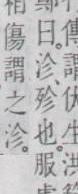 傳謂伏生洪
鄭曰沴殄也服虔
相傷謂之沴